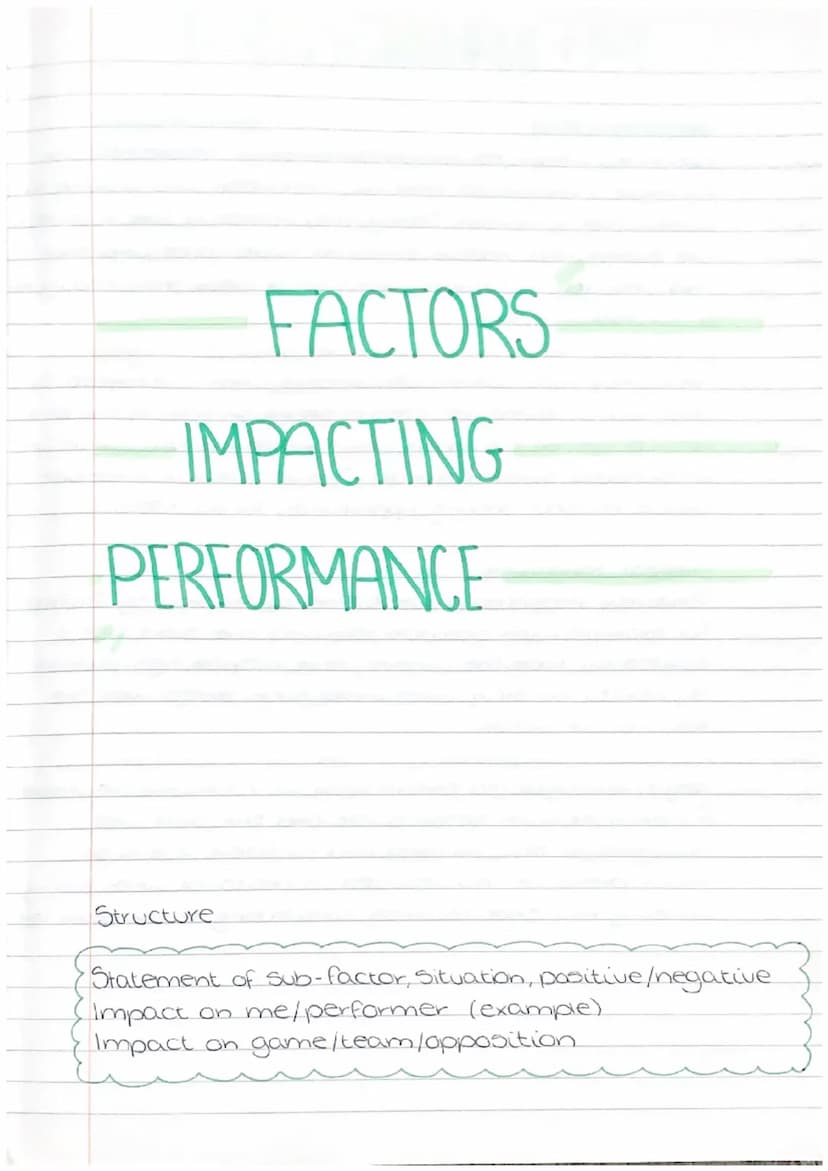 FACTORS
IMPACTING
PERFORMANCE
Structure
Statement of sub-factor, situation, positive/negative
Impact on me/performer (example)
Impact on game/team/opposition